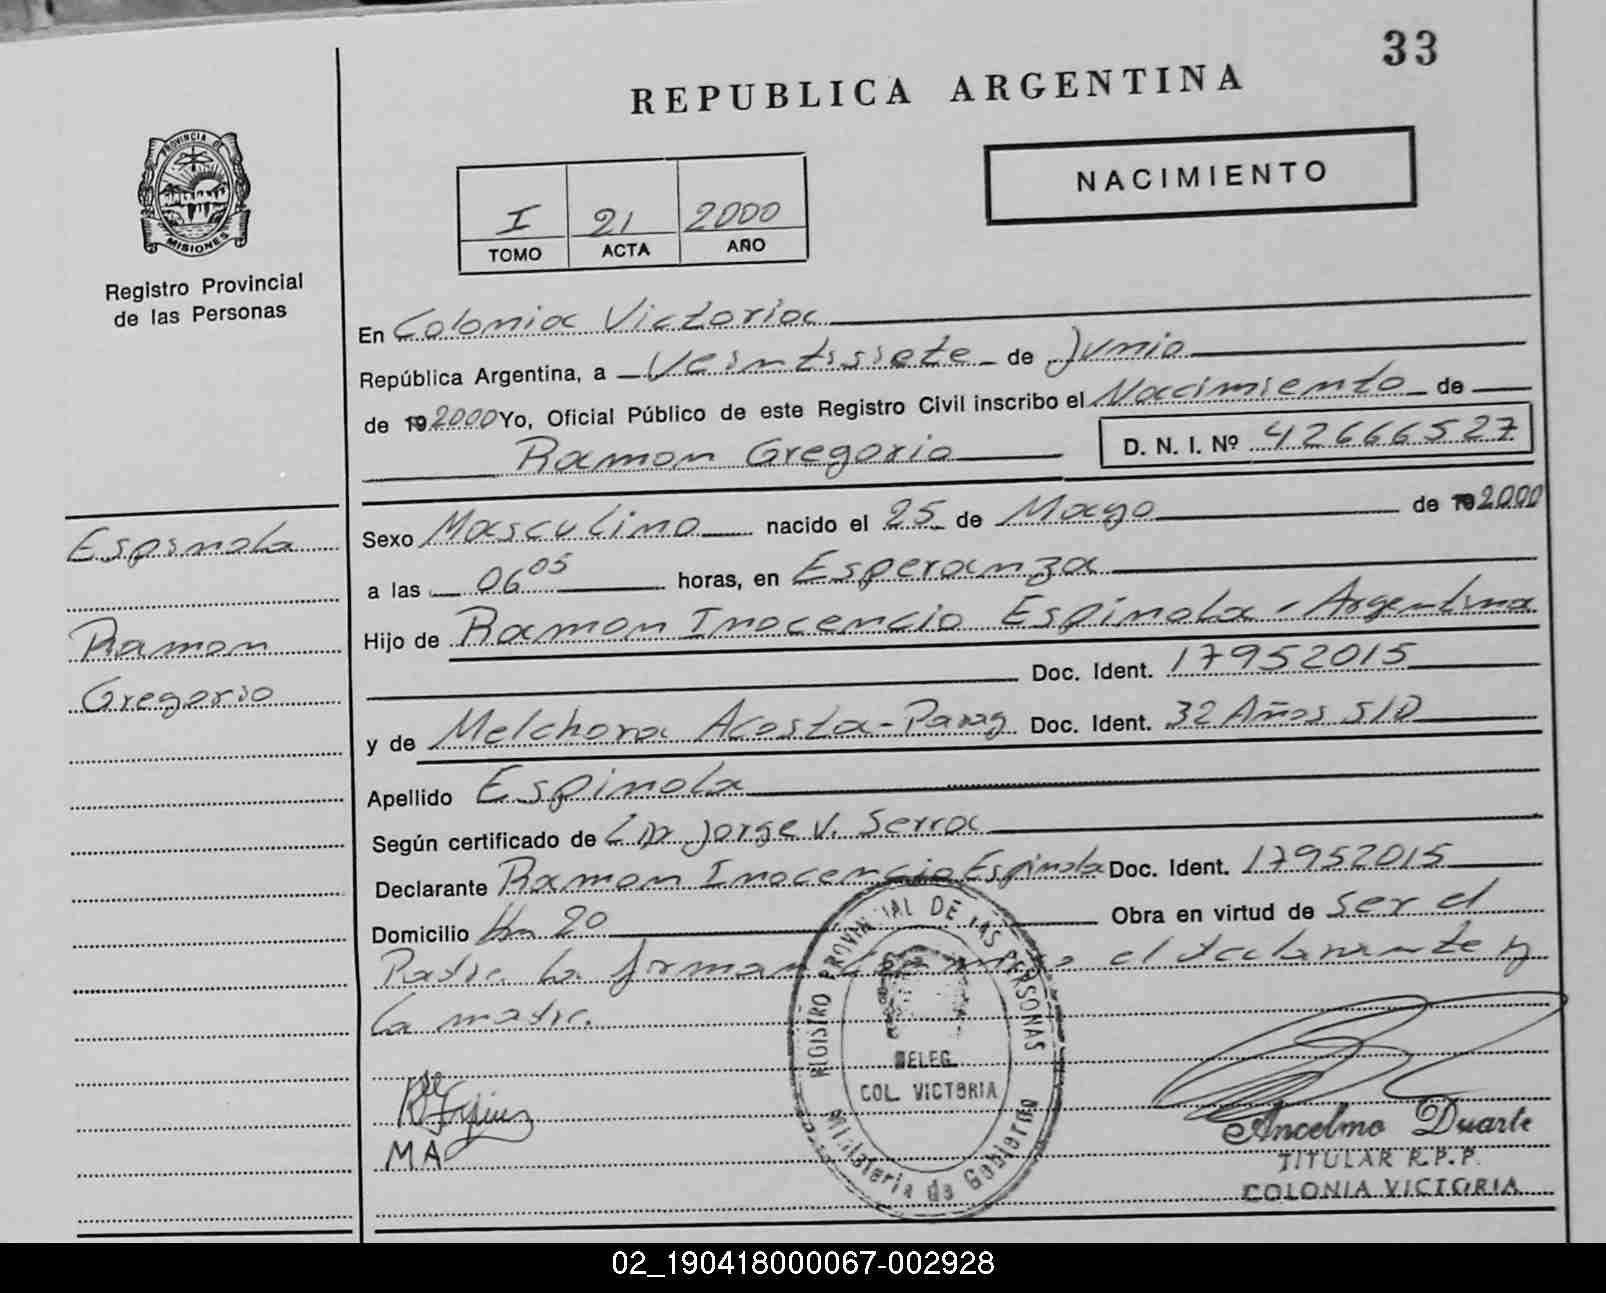 33
REPUBLICA ARGENTINA
NACIMIENTO
PROVINCIA DE
MISIONES
Registro Provincial
de las Personas
I 21 2000
TOMO ACTA AÑO
En Colonia Victoria
República Argentina, a Veintisiete de Junio
de 19 2000 Yo, Oficial Público de este Registro Civil inscribo el Nacimiento de
Ramon Gregorio D. N. I. Nº 42666527
Sexo Masculino nacido el 25 de Mayo de 19 2000
a las 06 05 horas, en Esperanza
Hijo de Ramon Inocencio Espinola - Argentina
Doc. Ident. 17952015
y de Melchora Acosta - Parag Doc. Ident. 32 Años S/D
Apellido Espinola
Según certificado de Jorge V. Serra
Declarante Ramon Inocencio Espinola Doc. Ident. 17952015
Domicilio Km 20 Obra en virtud de ser el
Padre. La firman el declarante y
la madre.
Espinola
Ramon
Gregorio
MA
REGISTRO PROVINCIAL DE LAS PERSONAS
DELEG.
COL. VICTORIA
Ministerio de Gobierno
Ancelmo Duarte
TITULAR R.P.P.
COLONIA VICTORIA
02_190418000067-002928